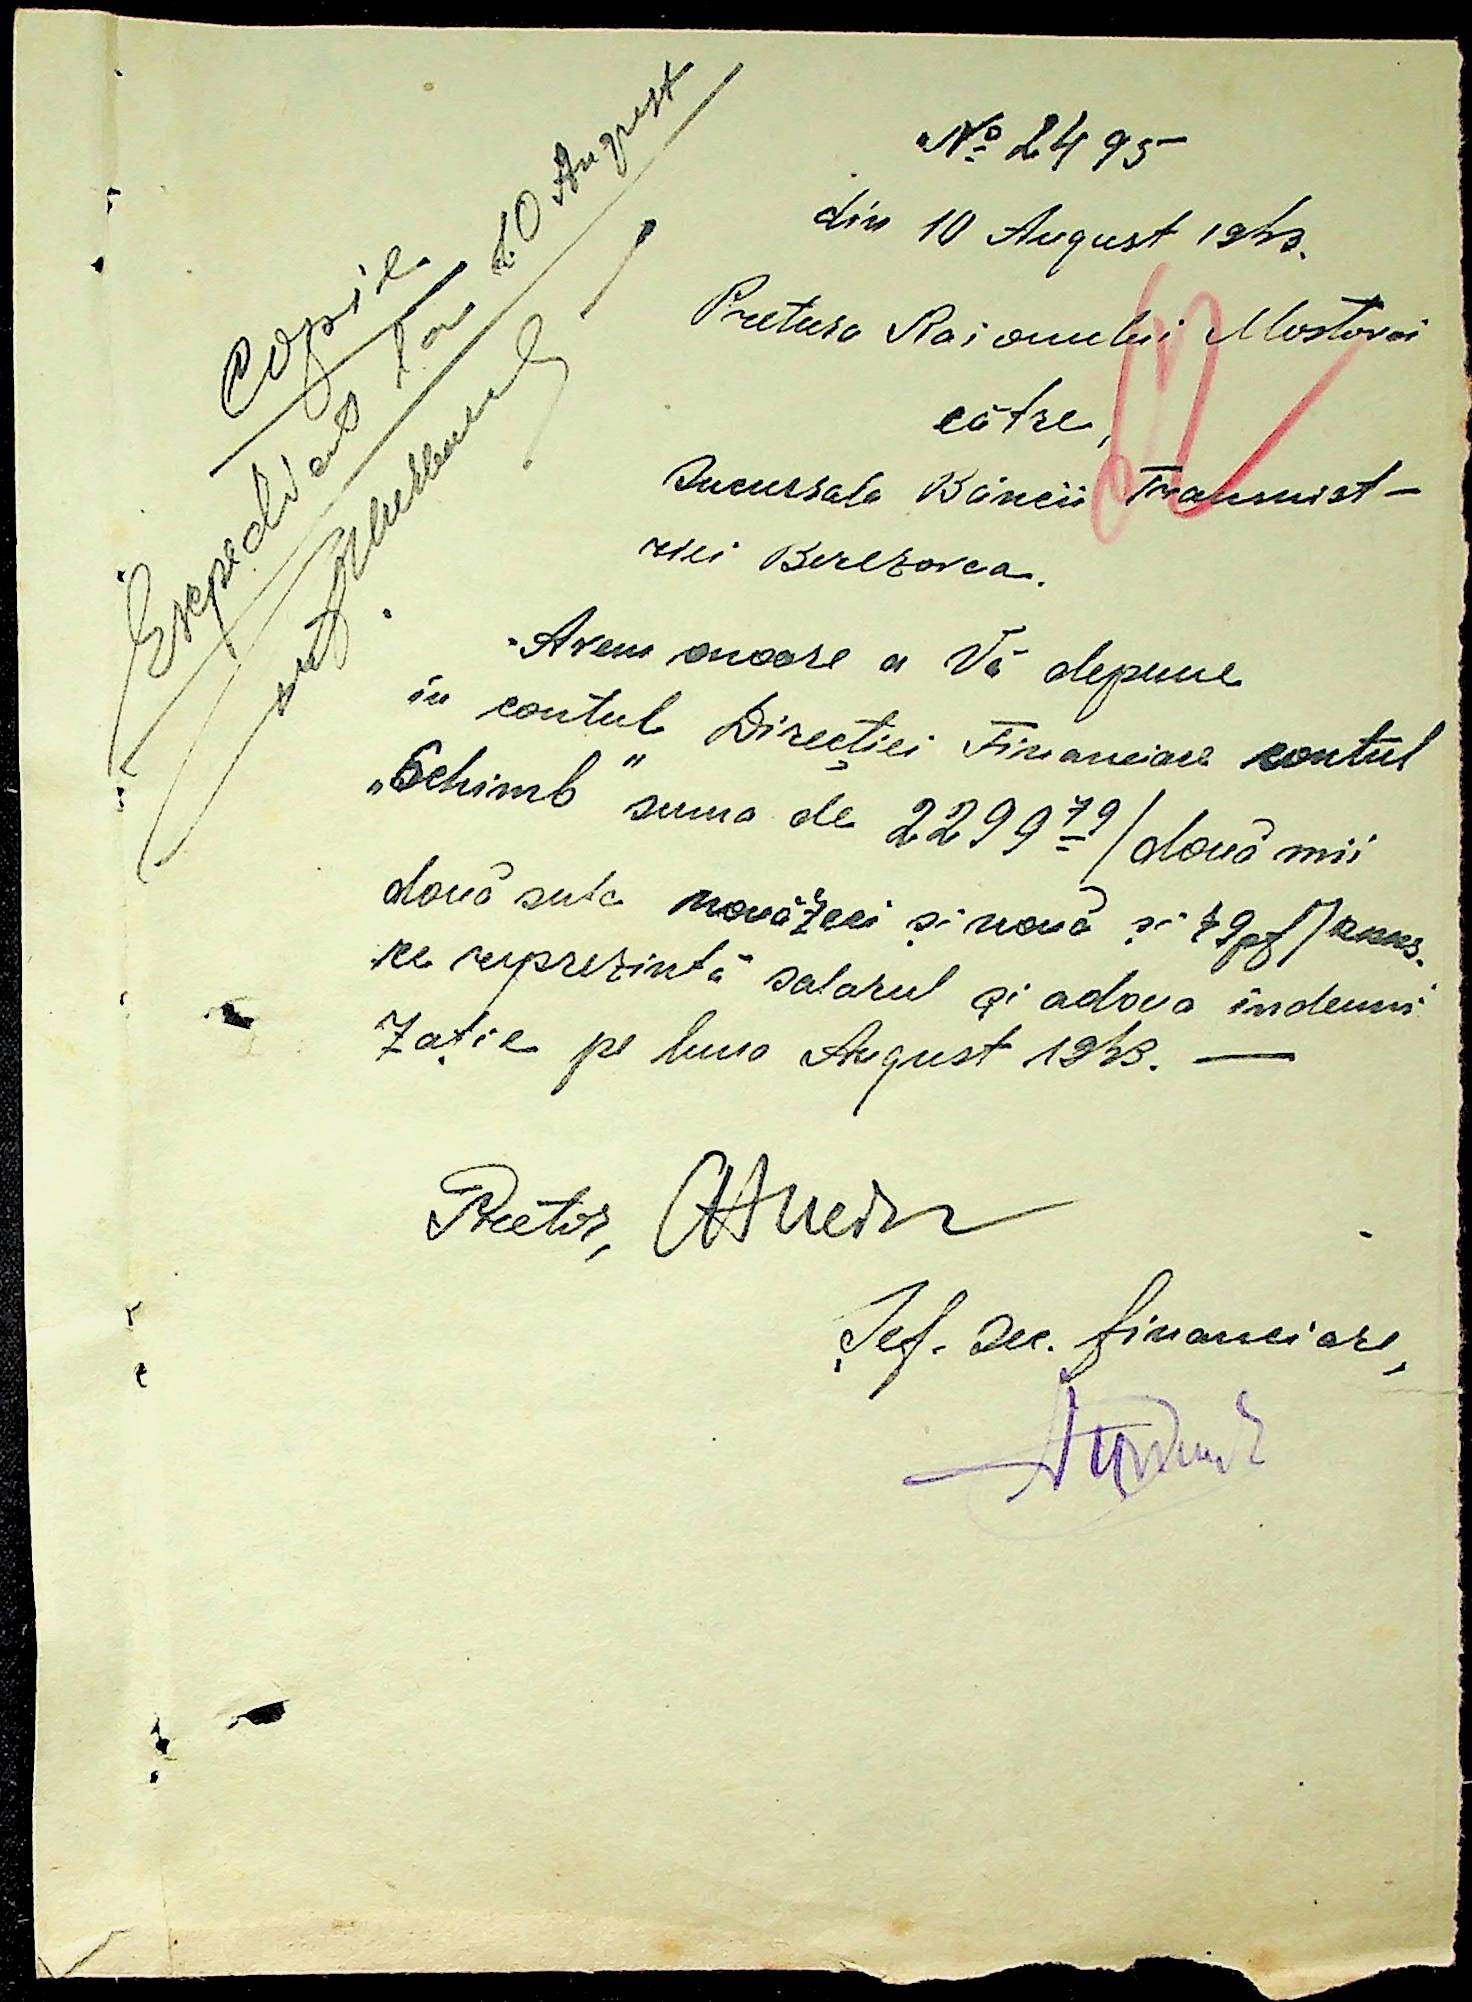 Copie
Expediat La 10 August
№ 2495
din 10 August 1943.
Pretura Raionului Mostovoi
către,
Sucursala Băncii Transnist-
riei Berezovca.
Avem onoare a Vă depune
în contul Direcției Financiare contul
„Schimb" suma de 2299 79/două mii
două sute nouăzeci și nouă și 79 pf/
ce reprezintă salarul și adoua indemni
zație pe luna August 1943. —
Pretor,
Șef. Sec. financiare,